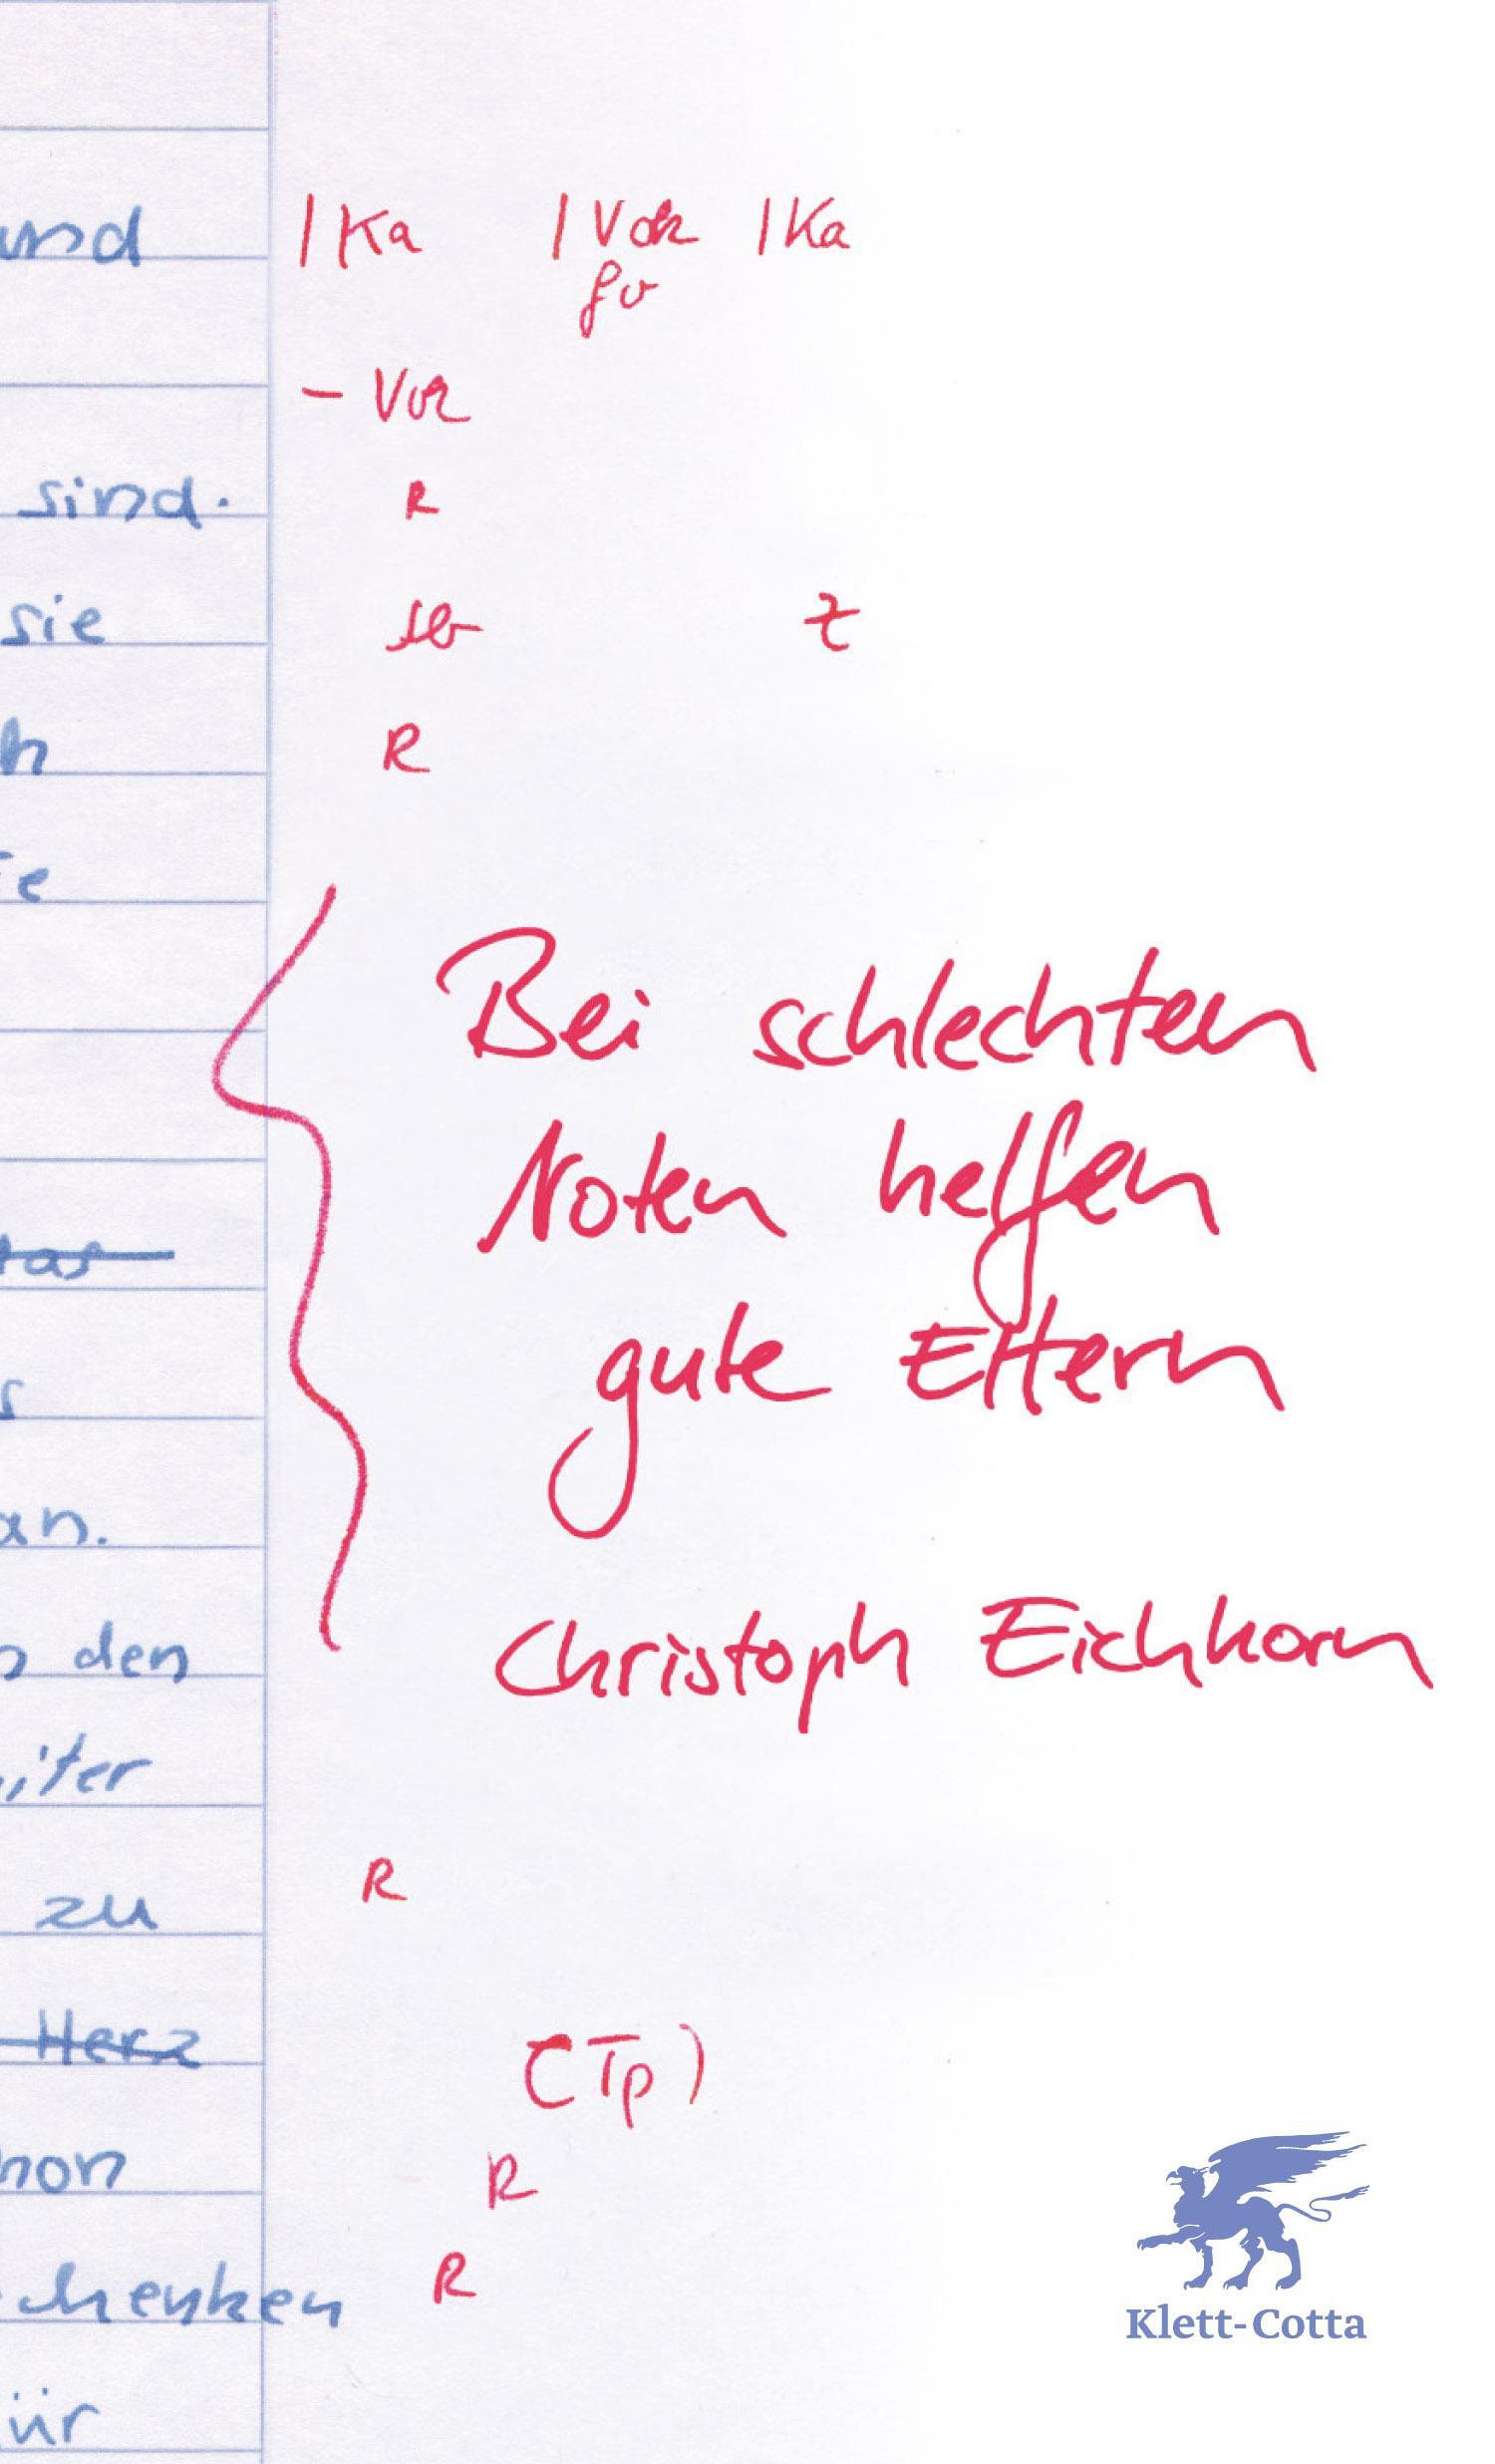 und | Ka | Vok | Ka
fv
- Vok
sind. R
sie sb z
h R
ie
Bei schlechten
Noten helfen
tas
gute Eltern
s
an.
den
Christoph Eichhorn
iter
zu R
Herz (Tp)
hon R
chenken R
ür
Klett-Cotta